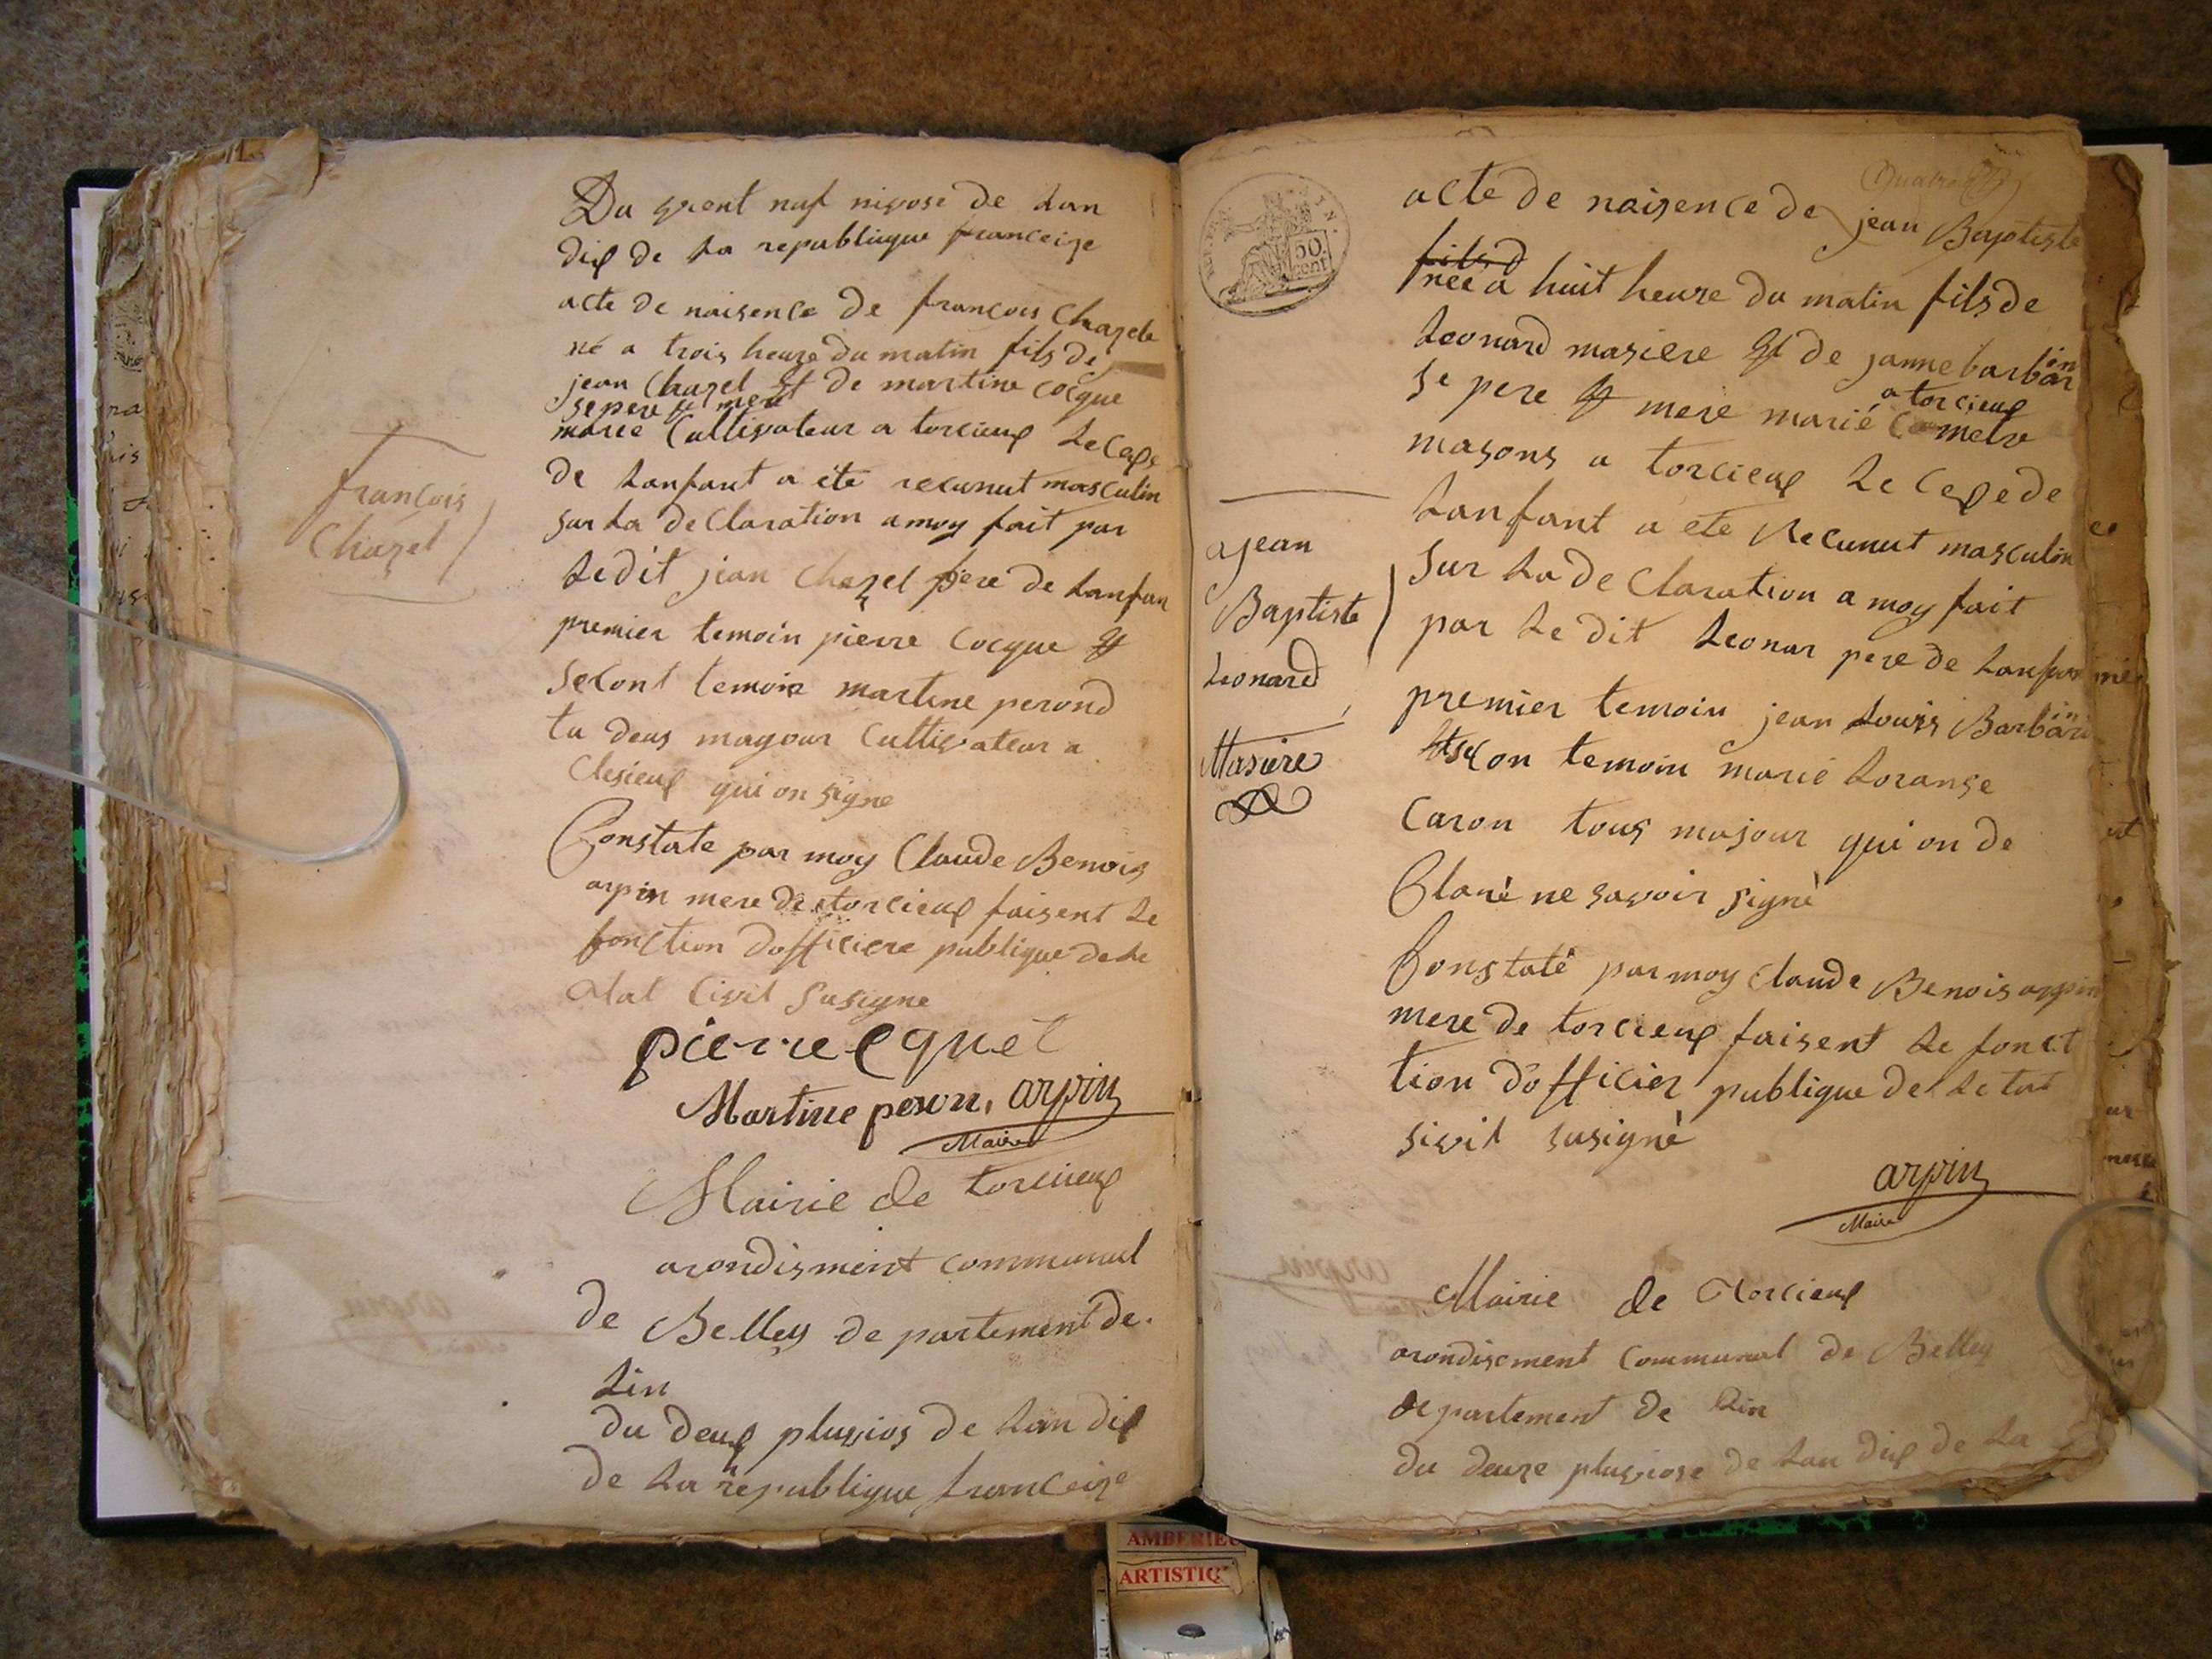 Du vrent nuf nivose de Lan
dix de La republiuque franceize
acte de naisence de francois Chazele
né a trois heuze du matin fils de
jean Chazel et de martine cocque
se pere et mere
marié Cultivateur a torcieux Le Cexe
de Lanfant a été recunut masculin
sur La de Claration a moy fait par
Ledit jean Chezel pere de Lanfan
premier temoin pierre Cocque et
Secont temoin martine perond
tu deus mayour Cultivateur a
Clesieux qui on signe
Constate par moy Claude Benois
arpin mere de torcieux faisent Le
fonction dofficiere publique de Le
Etat Civil Susigne
pierre Cquet
Martine peron, arpin
Maire
Mairie de torcieux
arondisment communal
de Belley de partement de
Lin
du deux pluvios de Lan dix
de La republique franceize
françois
Chazel
REP. FRA.
50
cent
acte de naisence de jean Baptiste
fils d
nee a huit heure du matin fils de
Leonard masiere et de janne barbarin
se pere et mere marié a torcieux
masons a torcieux Le Cexe de
Lanfant a ete Recunut masculin
Sur La de Claration a moy fait
par Le dit Leonar pere de Lanfan
premier temoin jean Louis Barbarin
et secon temoin marié Loranse
Caron tous majour qui on de
Claré ne savoir signé
Constaté par moy Claude Benois arpin
mere de torcieux faisent Le fonct
tion d'officier publique de Le tat
sivil susigné
arpin
Maire
Mairie de Torcieux
arondisement Communal de Belley
departement de Lin
du deuze pluviose de Lan dix de La
jean
Baptiste
Leonard
Masiere
AMBERIEU
ARTISTIQ